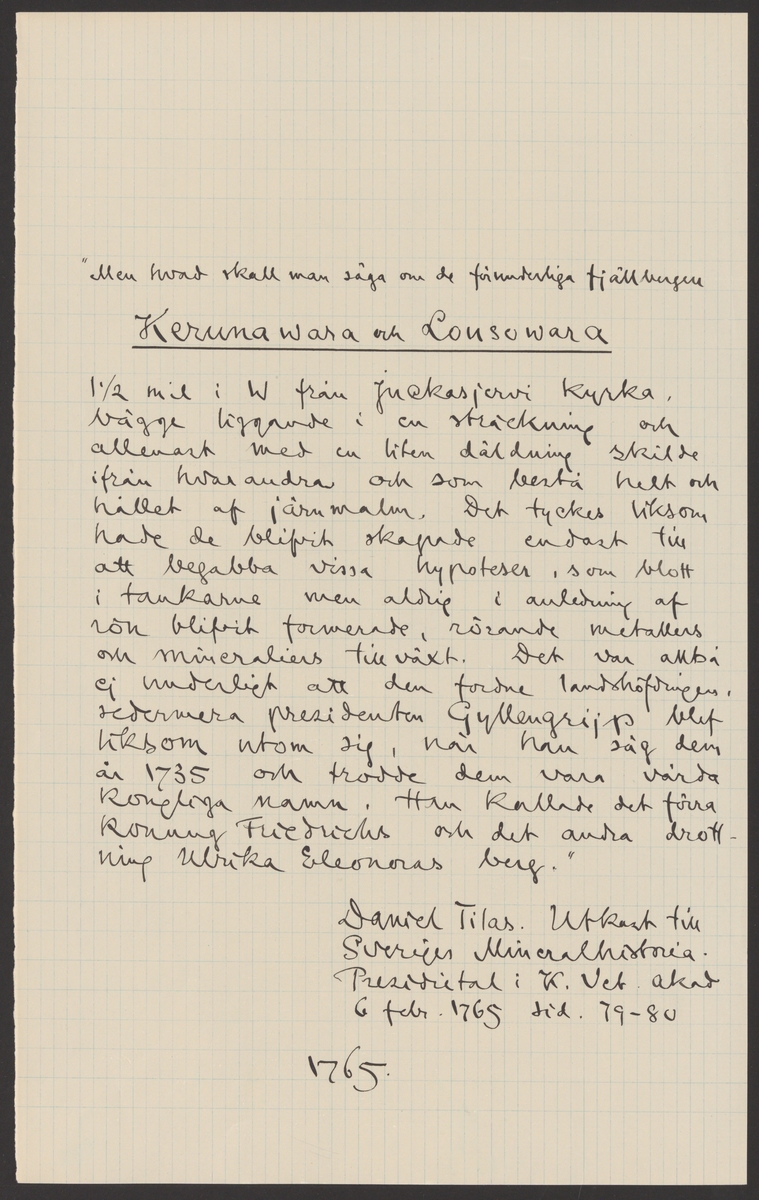 "Men hvad skall man säga om de förunderliga fjällbergen
Kerunawara och Lousowara
1 1/2 mil i W från Juckasjervi Kyrka,
bägge liggande i en sträckning och
allenast med en liten däldning skilde
ifrån hvarandra och som bestå helt och
hållet af järnmalm. Det tyckes liksom
hade de blifvit skapade endast till
att begabba vissa hypoteser, som blott
i tankarne men aldrig i anledning af
rön blifvit formerade, rörande metallers
och mineraliers tillväxt. Det var alltså
ej underligt att den fordne landshöfdingen,
sedermera presidenten Gyllengripp blef
liksom utom sig, när han såg dem
år 1735 och trodde dem vara värda
Kongliga namn. Han kallade det förra
Konung Friedrichs och det andra drott-
ning Ulrika Eleonoras berg."
Daniel Tilas. Utkast till
Sveriges Mineralhistoria.
Presidietal i K. Vet. Akad
6 febr. 1765 sid. 79-80
1765.